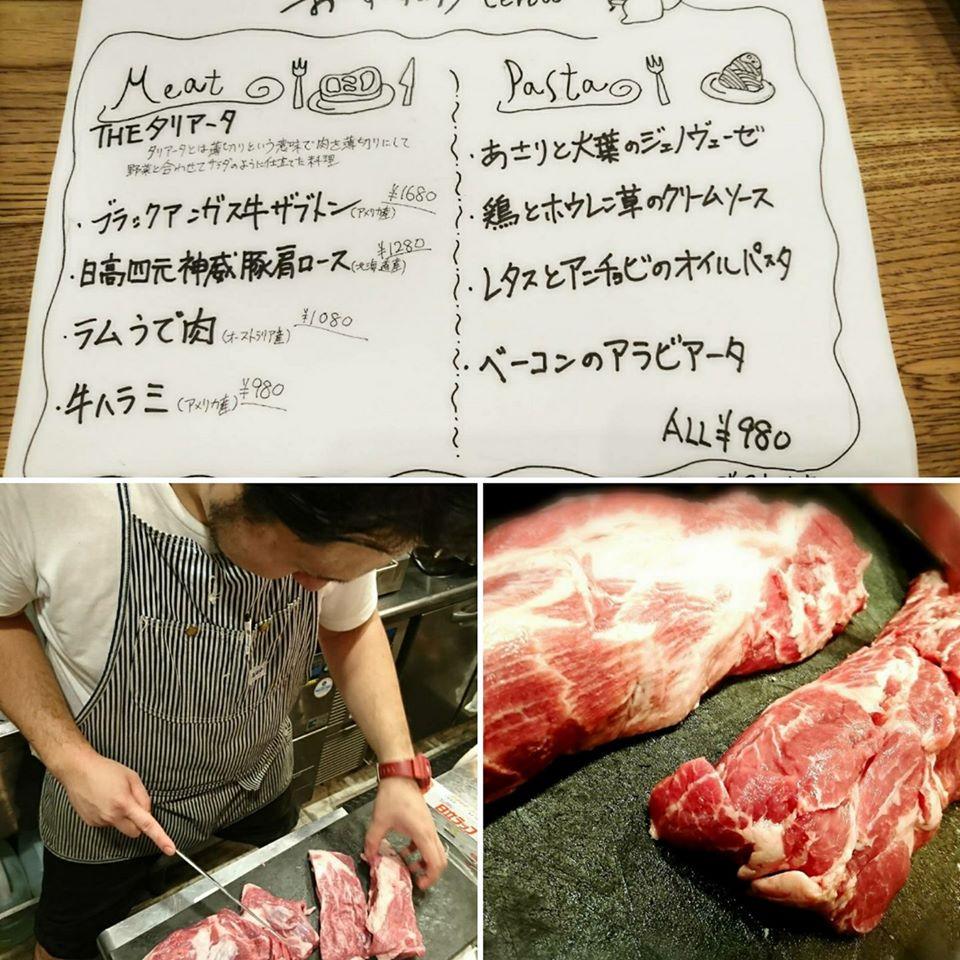 Meat
THEタリアータ
タリアータとは薄切りという意味で肉を薄切りにして
野菜と合わせてサラダのように仕立てた料理
・ブラックアンガス牛ザブトン(アメリカ産) ¥1680
・日高四元神威豚肩ロース(北海道産) ¥1280
・ラムうで肉(オーストラリア産) ¥1080
・牛ハラミ(アメリカ産) ¥980
Pasta
・あさりと大葉のジェノヴェーゼ
・鶏とホウレン草のクリームソース
・レタスとアンチョビのオイルパスタ
・ベーコンのアラビアータ
ALL ¥980